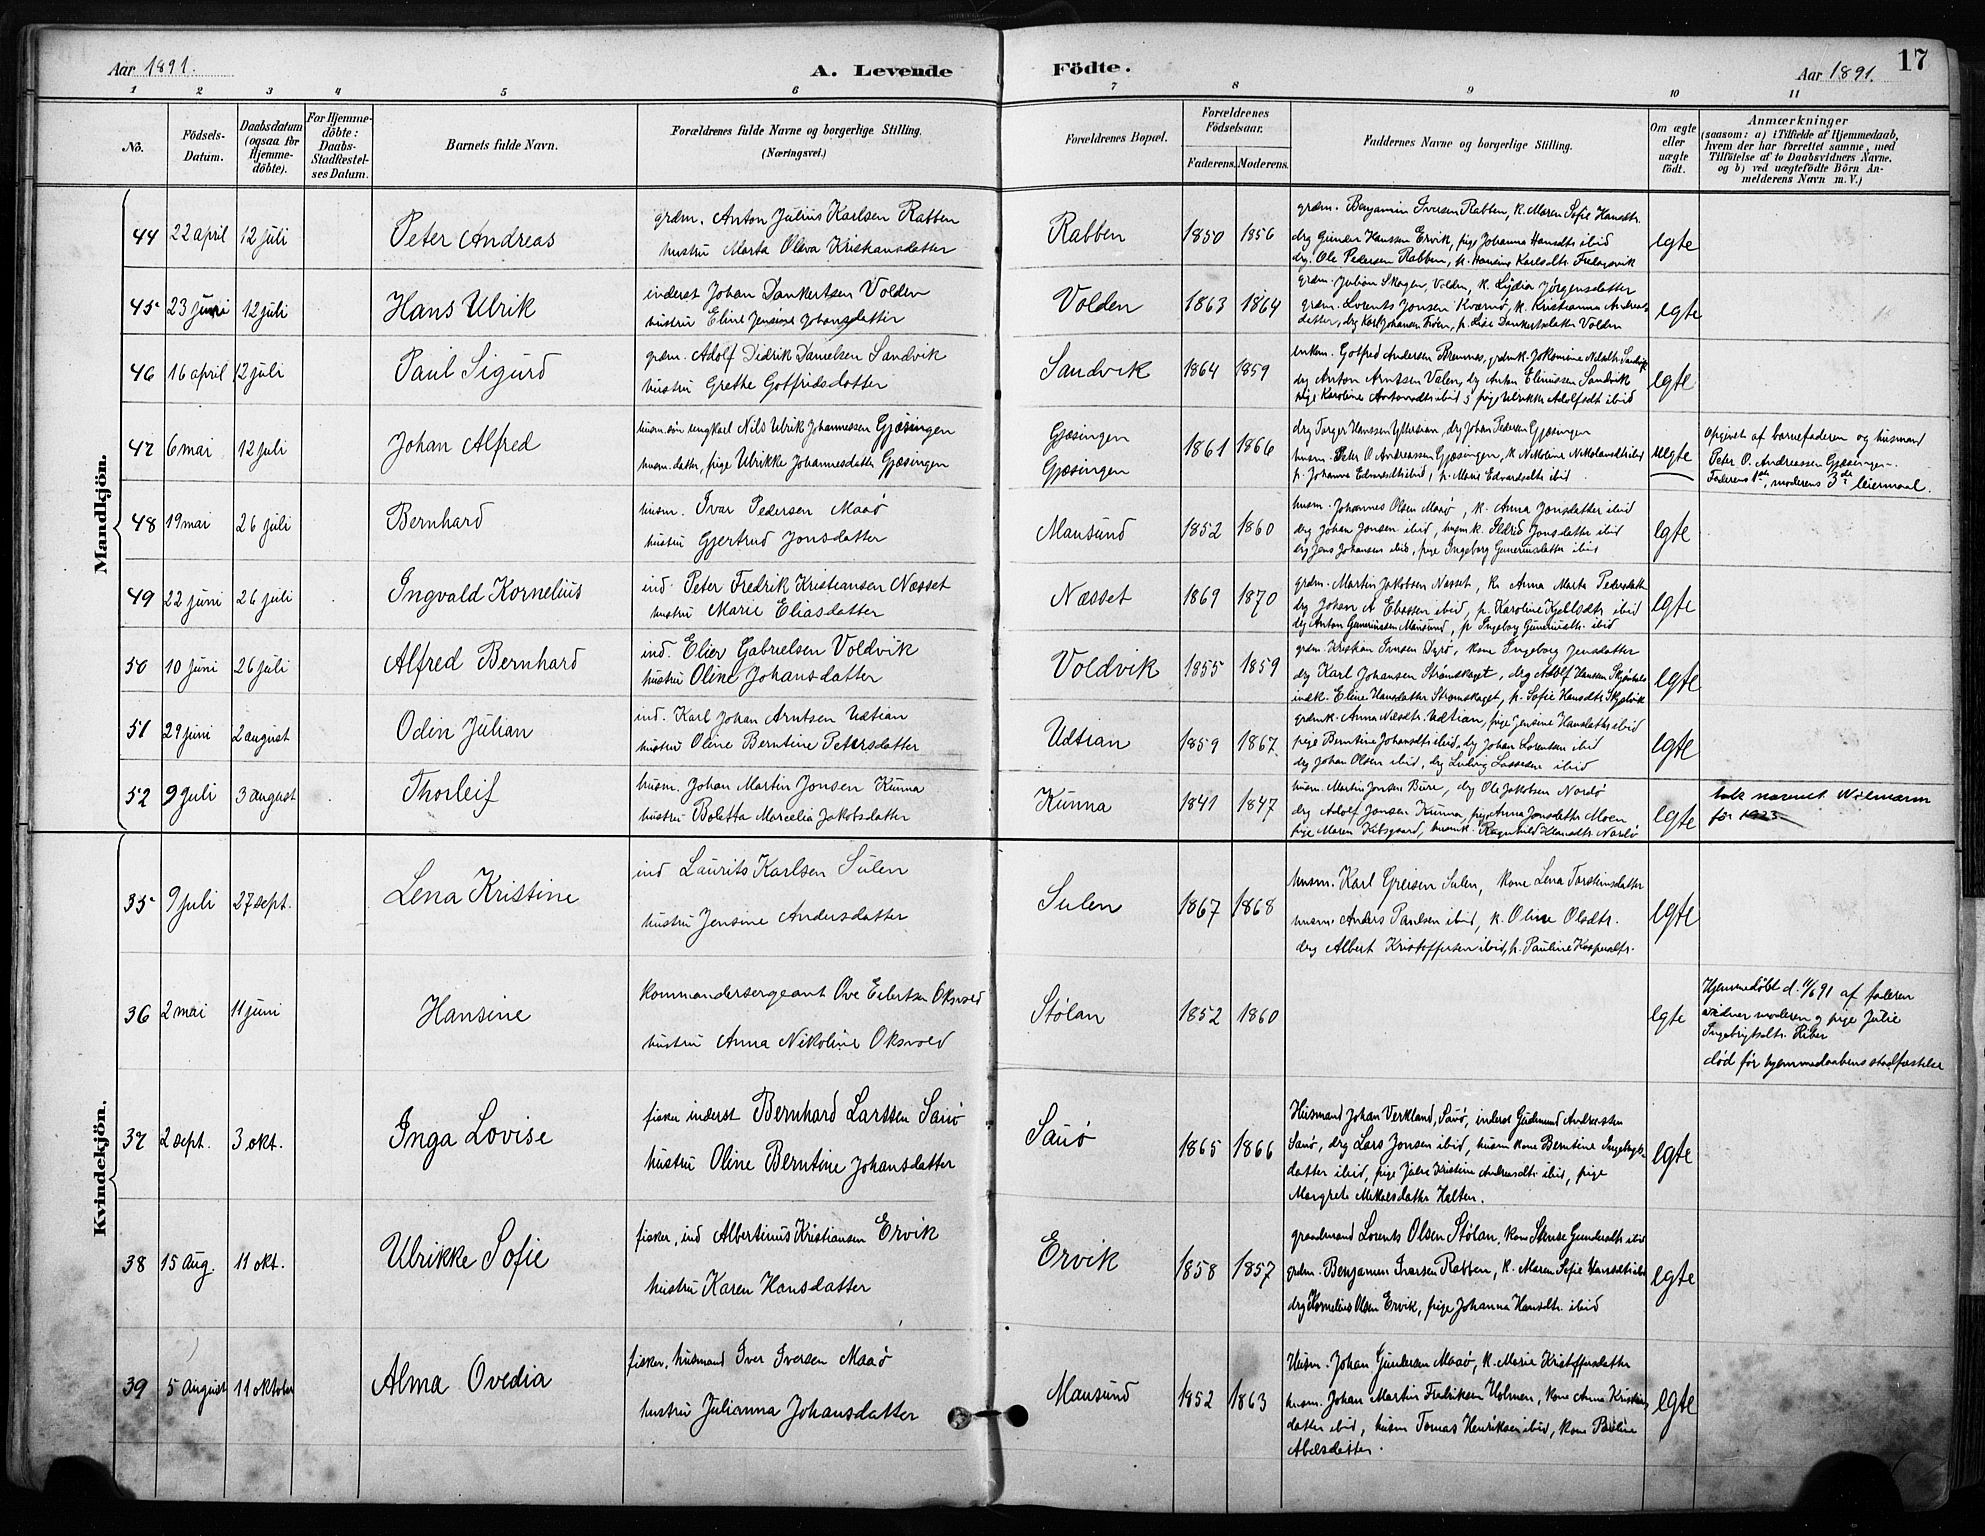 Aar 1891.
A. Levende Födte.
Aar 1891.
17
1 2 3 4 5 6 7 8 9 10 11
No.
Födsels-Datum.
Daabsdatum (ogsaa for Hjemme-döbte).
For Hjemme-döbte: Daabs-Stadfæstel-ses Datum.
Barnets fulde Navn.
Forældrenes fulde Navne og borgerlige Stilling.
(Næringsvei.)
Forældrenes Bopæl.
Forældrenes Födselsaar.
Faderens. Moderens.
Faddernes Navne og borgerlige Stilling.
Om ægte eller uægte födt.
Anmærkninger
(saasom: a) i Tilfælde af Hjemmedaab,
hvem der har forrettet samme, med
Tilföielse af to Daabsvidners Navne,
og b) ved uægtefödte Börn An-
melderens Navn m. V.)
Mandkjön.
44 22 april 12 juli Peter Andreas
grdm. Anton Julius Karlsen Rabben
hustru Marta Oliva Kristiansdatter
Rabben 1850 1856
grdm. Benjamin Iversen Rabben, k. Maren Sofie Hansdtr.
drg Gunder Hanssen Ervik, pige Johanna Hansdtr ibid
drg. Ole Pedersen Rabben, p. Hansine Karlsdtr
egte
45 23 juni 12 juli Hans Ulrik
inderst Johan Dankertsen Volden
hustru Eline Jensine Johansdatter
Volden 1863 1864
grdm. Julian Skagen, Volden, k. Lydia Jørgensdatter
grdm. Lorents Jonsen Kværnø, k. Kristianna Andreas-
datter, drg Karl Johansen Frøen, p. Lise Dankertsdatter Volden
egte
46 16 april 12 juli Paul Sigurd
grdm. Adolf Didrik Danielsen Sandvik
hustru Grethe Gotfridsdatter
Sandvik 1864 1859
enkem. Gotfred Andersen Bremnes, grdmk. Nilsdtr Sandvik
drg Anton Arntsen Valen, drg Anton Elinussen Sandvik
pige Karoline Antonsdtr ibid, pige Ulrikke Adolfsdt ibid
egte
47 6 mai 12 juli Johan Alfred
husm.søn ungkarl Nils Ulrik Johannessen Gjæsingen
husm.datter, pige Ulrikke Johannesdatter Gjæsingen
Gjæsingen
Gjæsingen
1861 1866
drg Torger Hanssen Yttersian, drg Johan Pedersen Gjæsingen
husm. Peter O Andreassen Gjæsingen, k Nikoline Nikolaisdtr ibid
p. Johanna Edvardsdtr ibid, p. Marie Edvardsdtr ibid
uegte
Opgivet af barnefaderen og husmand
Peter O. Andreassen Gjæsingen.
Faderens 1ste, moderens 3de leiermaal.
48 19 mai 26 juli Bernhard
husm. Ivar Pedersen Maaø
hustru Gjertrud Jonsdatter
Mausund 1852 1860
husm. Johannes Olsen Maaø, k. Anna Jonsdatter ibid
drg Johan Jonsen ibid, husmk. Sldrid Jonsdatter ibid
drg Jens Johansen ibid, pige Ingeborg Guneriusdatter ibid
egte
49 22 juni 26 juli Ingvald Kornelius
ind. Peter Fredrik Kristiansen Næsset
hustru Marie Eliasdatter
Næsset 1869 1870
grdm. Martin Jakobsen Næsset, k. Anna Marta Pedersdatt
drg Johan A Eliassen ibid, p. Karoline Kjellsdtr ibid
drg Anton Gunerinssen Mausund, p Ingeborg Guneriusdtr. ibid
egte
50 10 juni 26 juli Alfred Bernhard
ind. Elier Gabrielsen Voldvik
hustru Oline Johansdatter
Voldvik 1855 1859
grdm. Kristian Iversen Dyrø, kone Ingeborg Jensdatter
drg Karl Johansen Strømskaget, drg Adolf Hanssen
indk. Eline Hansdatter Strømskaget, p. Sofie Hansdtr
egte
51 29 juni 2 august Odin Julian
ind. Karl Johan Arntsen Udtian
hustru Oline Berntine Petersdatter
Udtian 1859 1867
grdmk. Anna Nilsdtr. Udtian, pige Jensine Hansdatter ibid
pige Berntine Johansdtr ibid, drg Johan Lorentsen ibid
drg Johan Olsen ibid, drg Ludvig Lassesen ibid
egte
52 9 juli 3 august Thorleif
husm. Johan Martin Jonsen Kunna
hustru Boletta Marcelia Jakobsdatter
Kunna 1841 1847
husm. Martin Jonsen Bure, drg Ole Jakobsen Nordø
drg Adolf Jonsen Kunna, pige Anna Jonsdatter Moen
pige Maren Kibsgaard, husmk. Ragnhild Nordø
egte
før 1923
Kvindekjön.
35 9 juli 27 sept. Lena Kristine
ind Laurits Karlsen Sulen
hustru Jensine Andersdatter
Sulen 1867 1868
husm. Karl Greisen Sulen, kone Lena Torsteinsdatter
husm. Anders Paulsen ibid, k. Oline Olsdtr.
drg Albert Kristoffersen ibid, p. Pauline Kaspersdtr.
egte
36 2 mai 11 juni Hansine
kommandersergeant Ove Eilertsen Oksvold
hustru Anna Nikoline Oksvold
Stølan 1852 1860
egte
Hjemmedøbt d. 11/6 91 af faderen
vidner moderen og pige Julie
Ingebrigtsdtr. Riber
død før hjemmedaabens stadfæstelse
37 2 sept. 3 okt. Inga Lovise
fisker inderst Bernhard Larssen Sauø
hustru Oline Berntine Johansdatter
Sauø 1865 1866
Husmand Johan Verkland, Sauø, inderst Gudmund Andreassen
Sauø, drg Lars Jonsen ibid, husm kone Berntine Ingebrigts-
datter ibid, pige Julie Kristine Andreasdtr ibid, pige
Margrete Mikalsdatter Halten.
egte
38 15 aug. 11 okt. Ulrikke Sofie
fisker, ind Albertinus Kristiansen Ervik
hustru Karen Hansdatter
Ervik 1858 1857
graadmand Lorents Olsen Stølan, kone Stense Gundersdtr ibid
grdm. Benjamin Ivarsen Rabben, k. Maren Sofie Hansdtr ibid
drg Kornelius Olsen Ervik, pige Johanna Hansdtr. ibid
egte
39 5 august 11 oktober Alma Ovedia
fisker, husmand Iver Iversen Maaø
hustru Julianna Johansdatter
Mausund 1852 1863
Husm. Johan Gundersen Maaø, k. Marie Kristoffersdatter
husm. Johan Martin Fredriksen Holmen, kone Anna Kristians
datter ibid, husm Tomas Henriksen ibid, kone Pauline
Abelsdatter.
egte